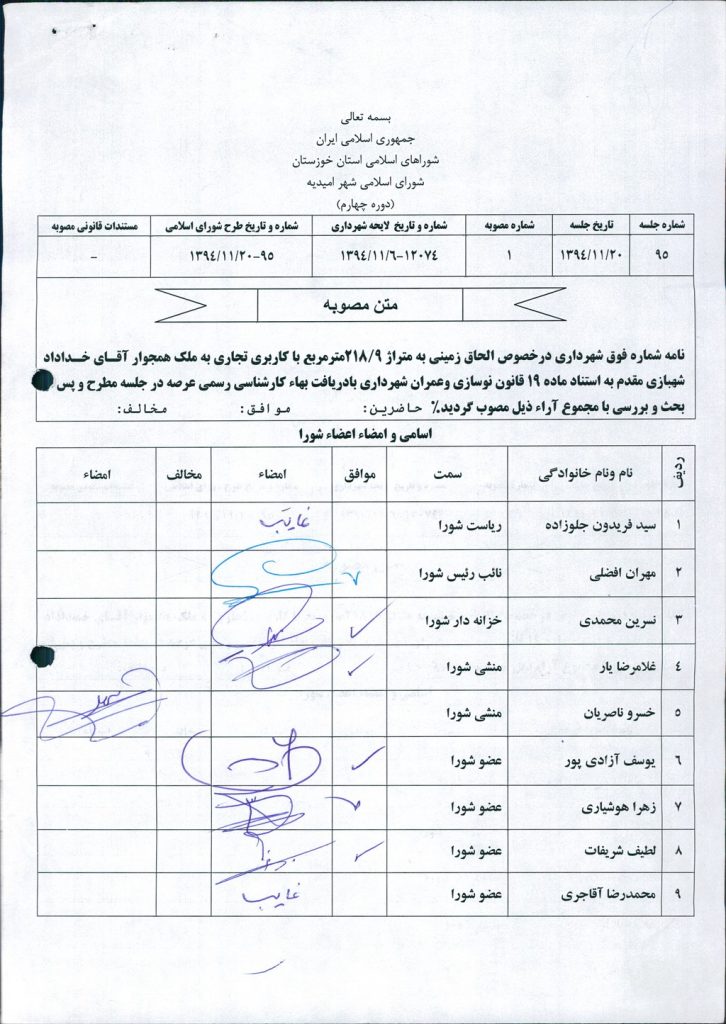 بسمه تعالی
جمهوری اسلامی ایران
شوراهای اسلامی استان خوزستان
شورای اسلامی شهر امیدیه
(دوره چهارم)
شماره جلسه تاریخ جلسه شماره مصوبه شماره و تاریخ لایحه شهرداری شماره و تاریخ طرح شورای اسلامی مستندات قانونی مصوبه
۹۵ ۱۳۹٤/۱۱/۲۰ ۱ ۱۲۰۷٤-۱۳۹٤/۱۱/٦ ۹۵-۱۳۹٤/۱۱/۲۰ -
متن مصوبه
نامه شماره فوق شهرداری درخصوص الحاق زمینی به متراژ ۲۱۸/۹مترمربع با کاربری تجاری به ملک همجوار آقای خـداداد
شهبازی مقدم به استناد ماده ۱۹ قانون نوسازی وعمران شهرداری بادریافت بهاء کارشناسی رسمی عرصه در جلسه مطرح و پس
بحث و بررسی با مجموع آراء ذیل مصوب گردید.٪ حاضرین: موافق: مخالف:
اسامی و امضاء اعضاء شورا
ردیف نام ونام خانوادگی سمت موافق امضاء مخالف امضاء
۱ سید فریدون جلوزاده ریاست شورا غایب
۲ مهران افضلی نائب رئیس شورا
۳ نسرین محمدی خزانه دار شورا
٤ غلامرضا یار منشی شورا
۵ خسرو ناصریان منشی شورا
٦ یوسف آزادی پور عضو شورا
۷ زهرا هوشیاری عضو شورا
۸ لطیف شریفات عضو شورا
۹ محمدرضا آقاجری عضو شورا غایب